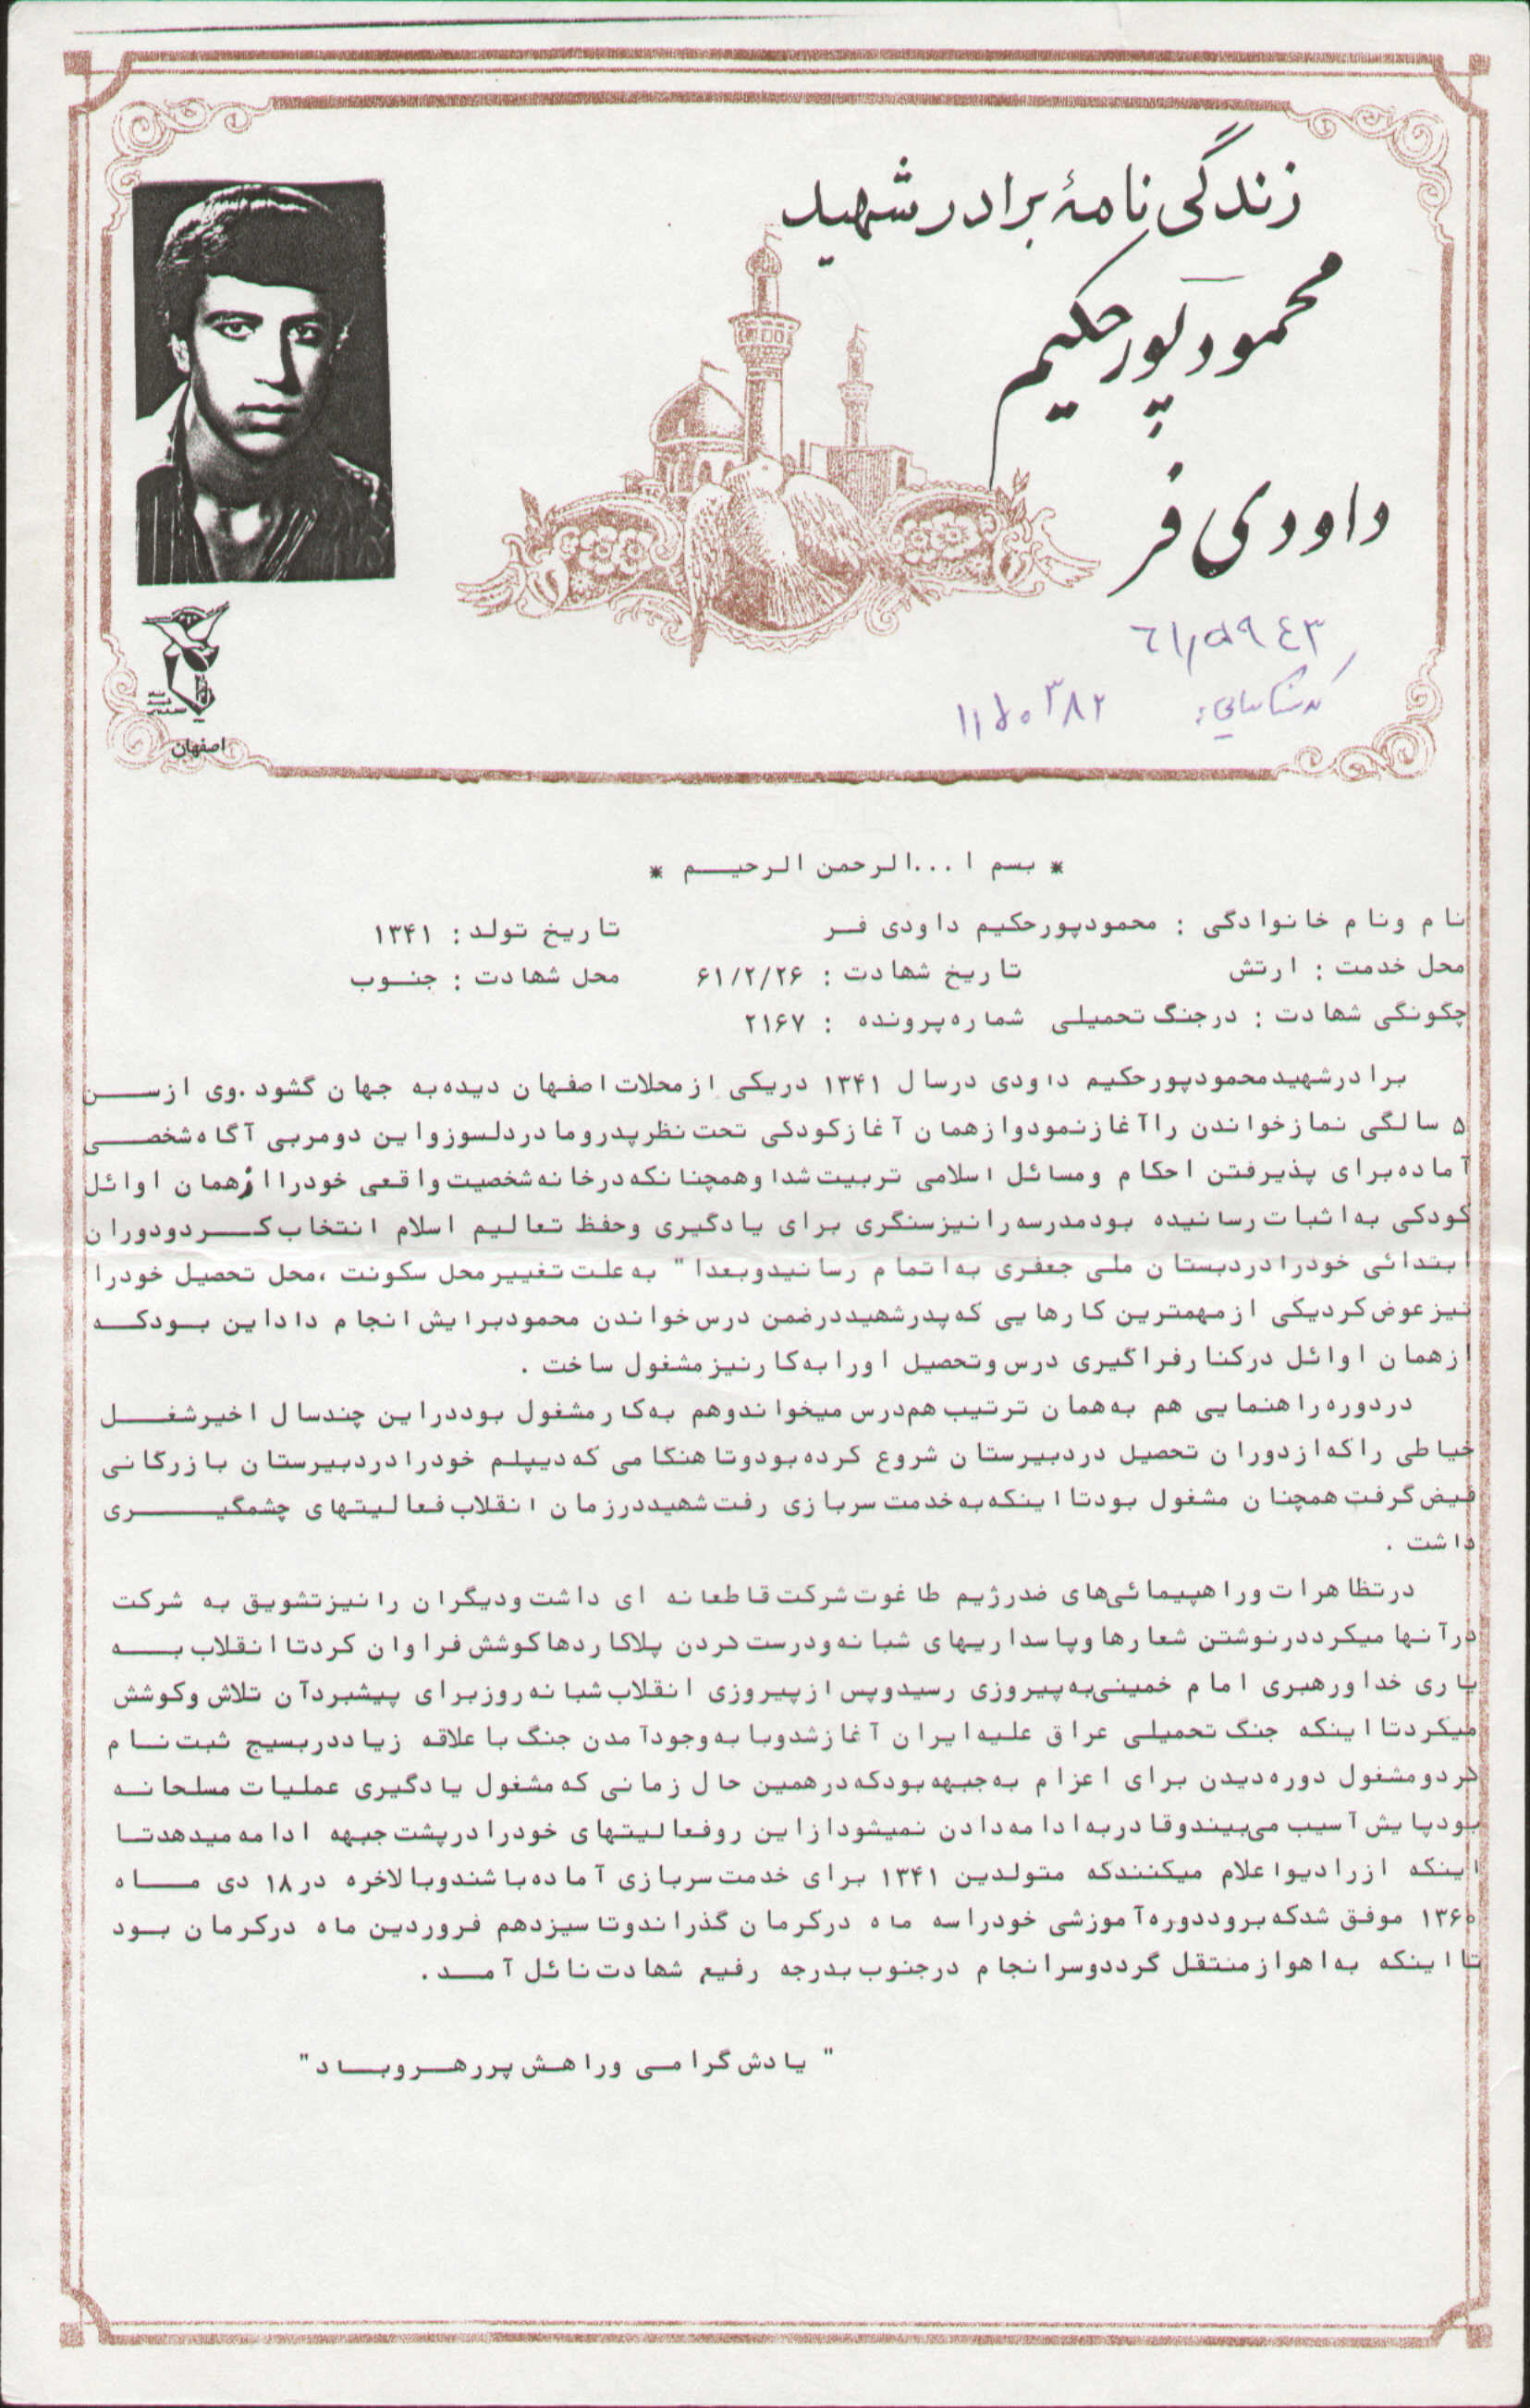 زندگی نامهٔ برادر شهید
محمود پور حکیم
داودی فر
۶۱,۵۹۴۳
کد شناسایی: ۱۱۵۰۳۸۲
اصفهان
* بسم ا ...الرحمن الرحیـم *
نام ونام خانوادگی : محمودپورحکیم داودی فـر تاریخ تولد: ۱۳۴۱
محل خدمت : ارتش تاریخ شهادت : ۶۱/۲/۲۶ محل شهادت : جنـوب
چگونگی شهادت : درجنگ تحمیلی شماره پرونده : ۲۱۶۷
برادرشهیدمحمودپورحکیم داودی درسال ۱۳۴۱ دریکی ازمحلات اصفهان دیده به جهان گشود .وی ازســن
۵ سالگی نمازخواندن راآغازنمودوازهمان آغازکودکی تحت نظرپدرومادردلسوزواین دومربی آگاه شخصـی
آماده برای پذیرفتن احکام ومسائل اسلامی تربیت شدا وهمچنانکه درخانه شخصیت واقعی خودراازهمان اوائل
کودکی به اثبات رسانیده بودمدرسه رانیزسنگری برای یادگیری وحفظ تعالیم اسلام انتخاب کــردودوران
ابتدائی خودرادردبستان ملی جعفری به اتمام رسانیدوبعدا" به علت تغییرمحل سکونت ،محل تحصیل خودرا
نیزعوض کردیکی ازمهمترین کارهایی که پدرشهیددرضمن درس خواندن محمودبرایش انجام داداین بـودکـه
ازهمان اوائل درکنارفراگیری درس وتحصیل اورابه کارنیزمشغول ساخت .
دردوره راهنمایی هم به همان ترتیب هم درس میخواندوهم به کارمشغول بوددراین چندسال اخیرشغــل
خیاطی راکه ازدوران تحصیل دردبیرستان شروع کرده بودوتاهنگامی که دیپلم خودرادردبیرستان بازرگانی
فیض گرفت همچنان مشغول بودتااینکه به خدمت سربازی رفت شهیددرزمان انقلاب فعالیتهای چشمگیـــری
داشت .
درتظاهرات وراهپیمائی‌های ضدرژیم طاغوت شرکت قاطعانه ای داشت ودیگران رانیزتشویق به شرکت
درآنهامیکرددرنوشتن شعارهاوپاسداریهای شبانه ودرست کردن پلاکاردهاکوشش فراوان کردتاانقلاب بـه
یاری خداورهبری امام خمینی به پیروزی رسیدوپس ازپیروزی انقلاب شبانه روزبرای پیشبردآن تلاش وکوشش
میکردتااینکه جنگ تحمیلی عراق علیه ایران آغازشدوبابه وجودآمدن جنگ باعلاقه زیاددربسیج ثبت نـام
کردومشغول دوره دیدن برای اعزام به جبهه بودکه درهمین حال زمانی که مشغول یادگیری عملیات مسلحانـه
بودپایش آسیب می‌بیندوقادربه ادامه دادن نمیشودازاین روفعالیتهای خودرادرپشت جبهه ادامه میدهدتـا
اینکه ازرادیواعلام میکنندکه متولدین ۱۳۴۱ برای خدمت سربازی آماده باشندوبالاخره در۱۸ دی مــاه
۱۳۶۰ موفق شدکه بروددوره آموزشی خودراسه ماه درکرمان گذراندوتاسیزدهم فروردین ماه درکرمان بـود
تااینکه به اهوازمنتقل گرددوسرانجام درجنوب بدرجه رفیع شهادت نائل آمــد.
" یادش گرامـی وراهـش پررهــروبــاد"